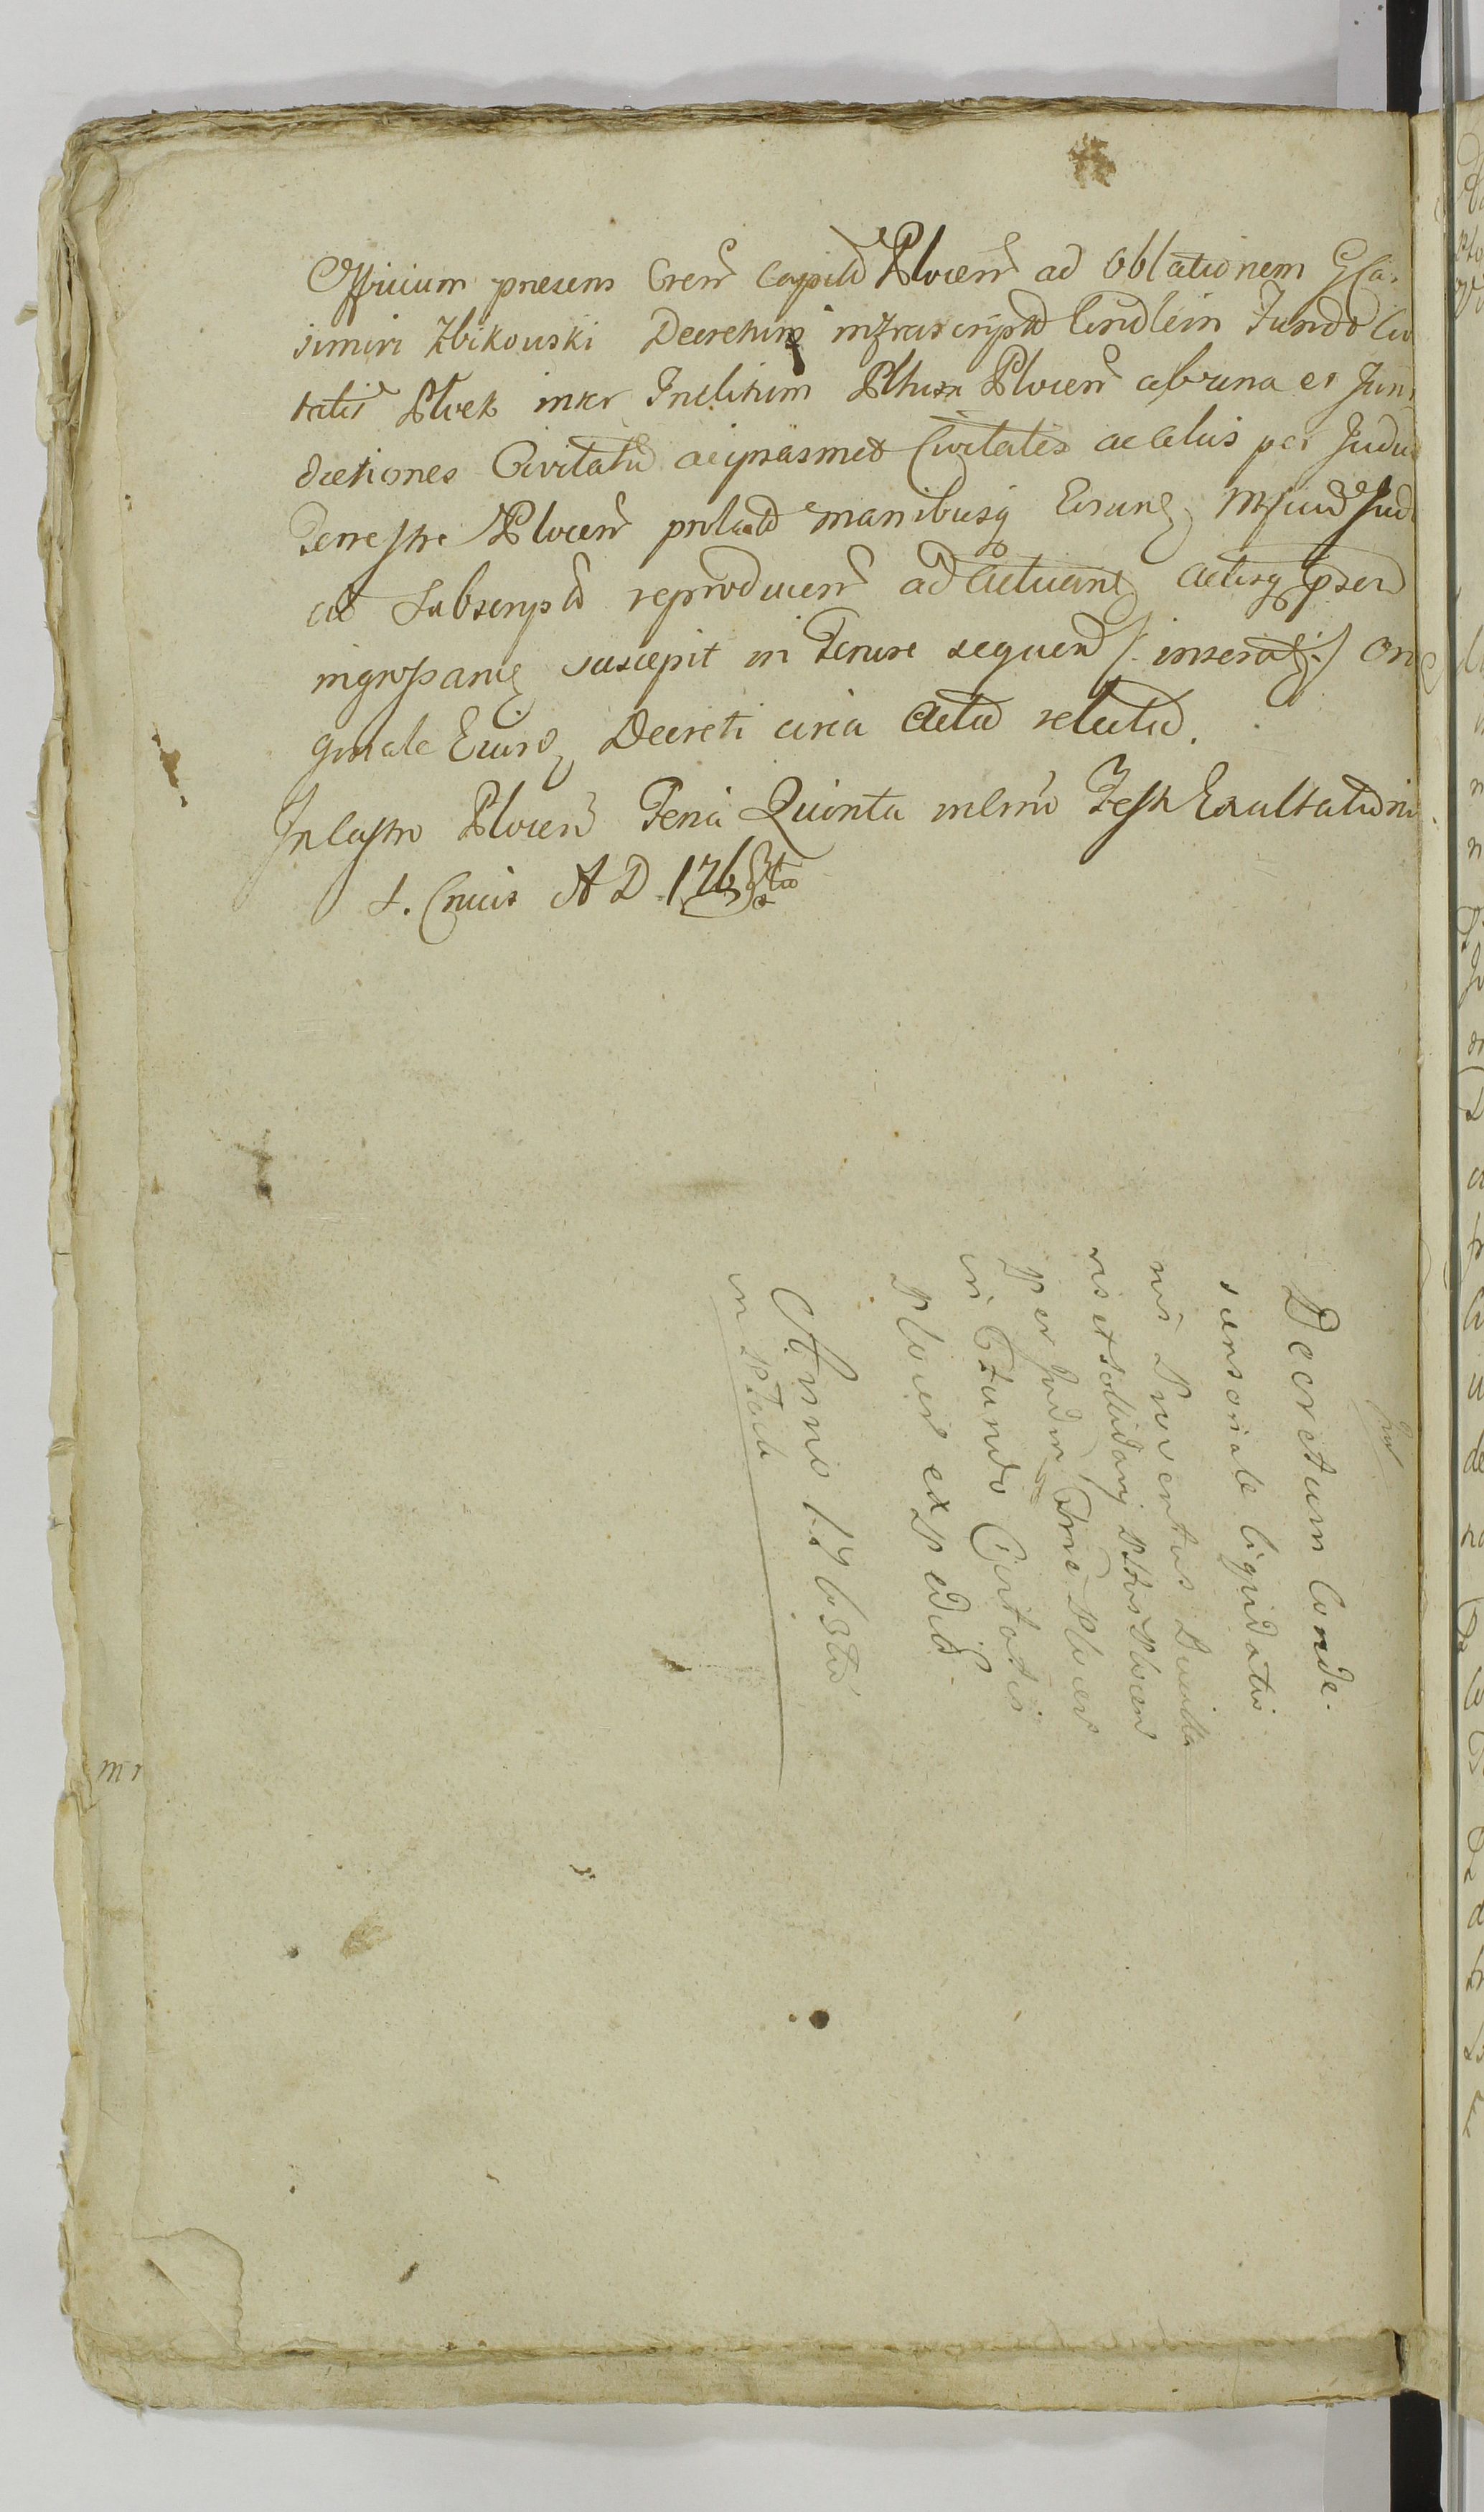 Officium presens Cren Capitu Plocen ad Oblationem G Ca-
simiri Zbikowski Decretum infrascriptu Cond in Fundo Civi
tatis Plock inter Inclitum Pltum Plocen ab una et Juris
dictiones Civitatu ac ipsasmet Civitates ac aliis per Judiu
Terrestre Plocen prolatu manibusq Eiusd Judi
ac Subscriptu reproducen ad Acticand Actisq psen
ingrossand suscepit in Tenore sequen /: inserat :/ Ori
ginale Eiusd Decreti circa Acta relictu.
In Castro Plocen Feria Quinta Festi Exaltationis
S. Crucis A D 1763tio
Decretum Conde-
scensoriale liquidatio
nis Proventus
per Judiu Trre Plocen
in Fundo Civitatis
Plocen expeditu
Anno 1763tio
in